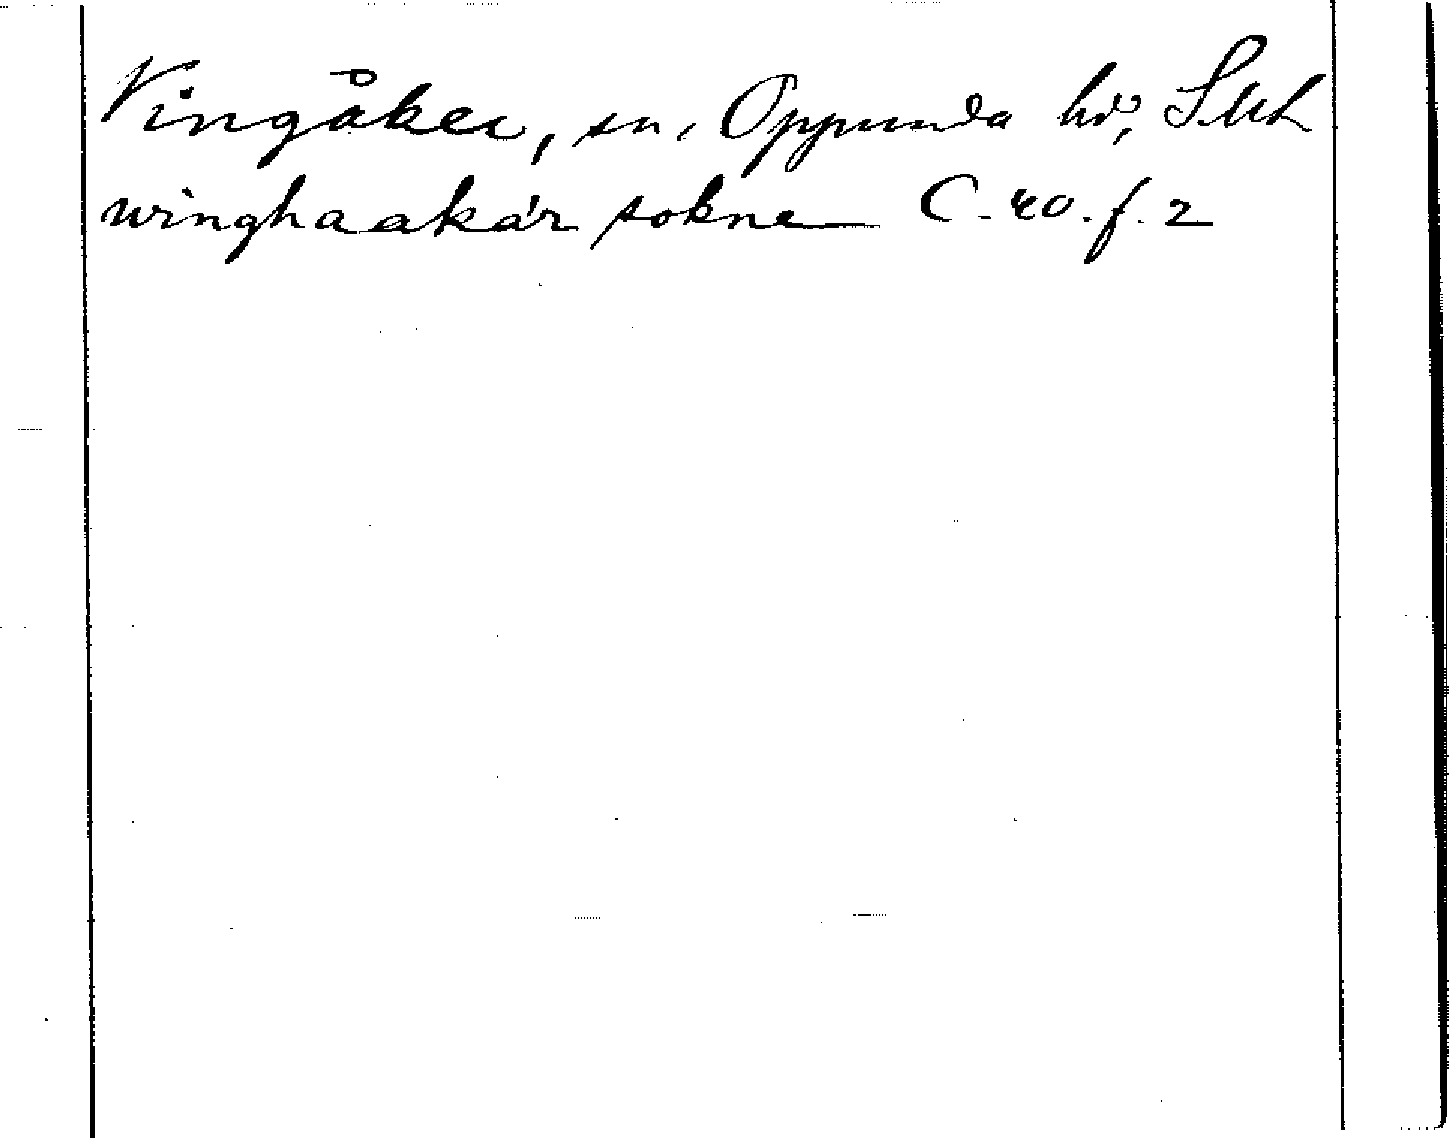 Vingåker, sn, Oppunda hd, Sml
winghaakär sokne C. 40. f. 2